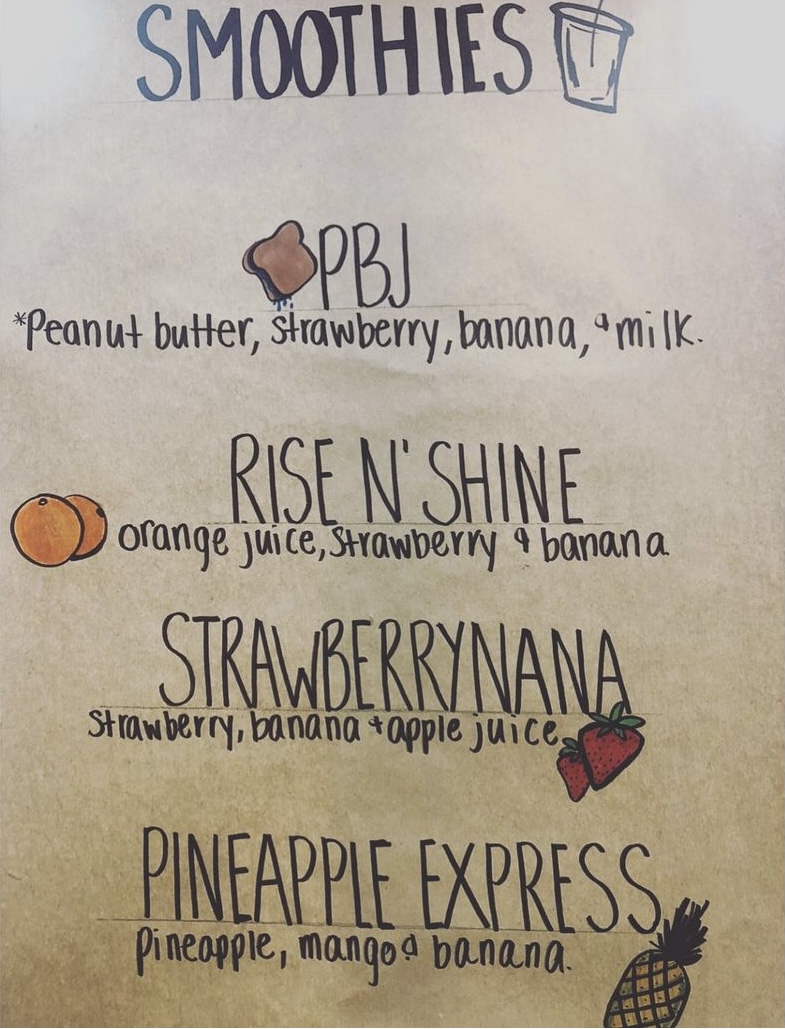 SMOOTHIES
PBJ
*Peanut butter, strawberry, banana, & milk.
RISE N' SHINE
orange juice, strawberry & banana
STRAWBERRYNANA
strawberry, banana & apple juice.
PINEAPPLE EXPRESS
pineapple, mango & banana.